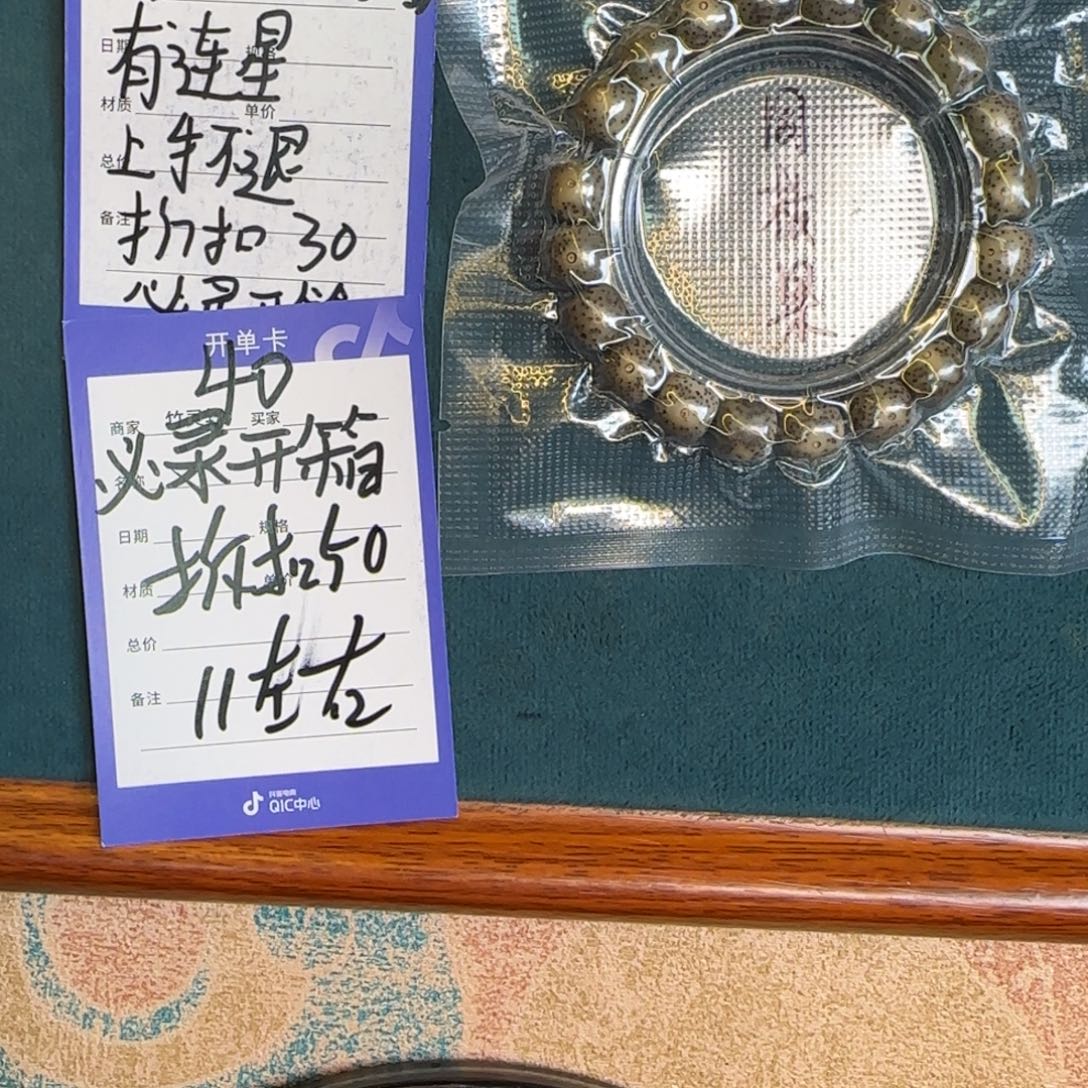 日期
有连星
材质 单价
上手不退
总价
备注
折扣 30
必录开箱
开单卡
40
商家 竹灵 买家
必录开箱
名称
日期 规格
折扣50
材质 单价
总价
11左右
备注
抖音电商
QIC中心